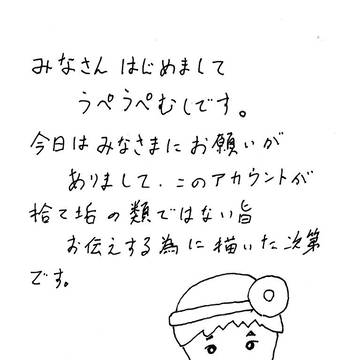 みなさん はじめまして
うぺうぺむしです。
今日はみなさまにお願いが
ありまして、このアカウントが
捨て垢の類ではない旨
お伝えする為に描いた次第
です。